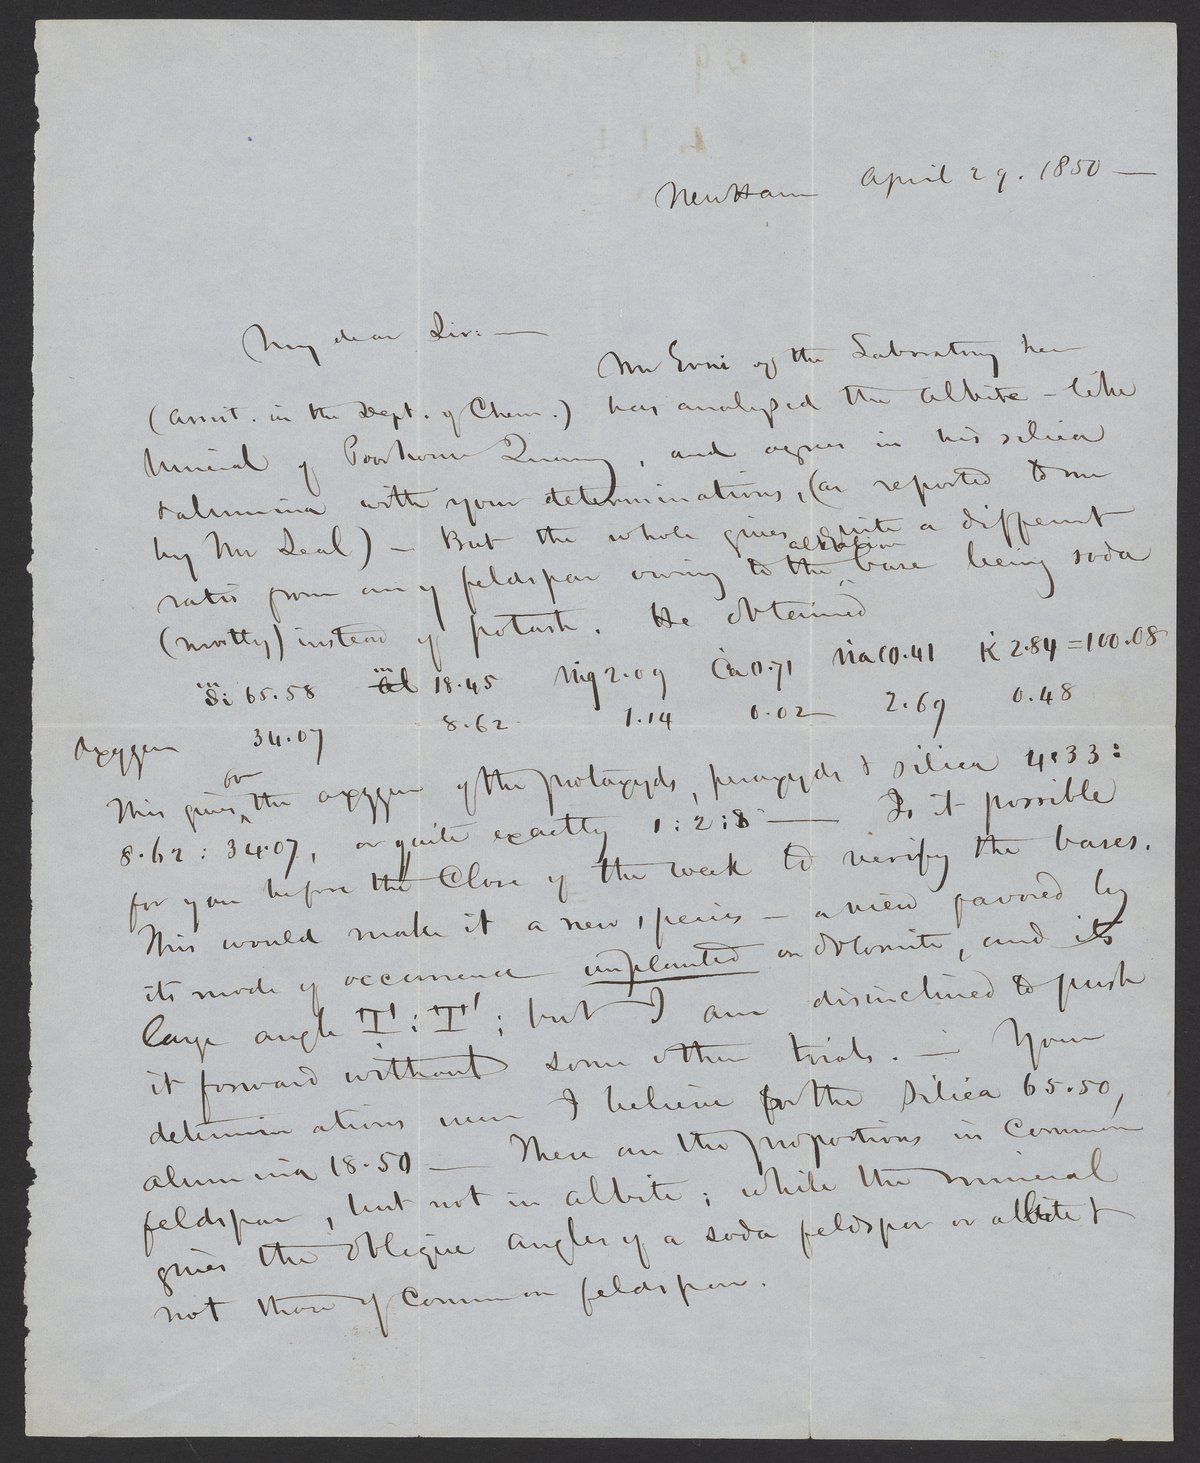 New Haven April 29. 1850 —
My dear Sir: —
Mr Erni of the Laboratory here
(Assist. in the Dept. of Chem.) has analyzed the albite-like
mineral of Poorhouse Quarry, and agrees in his silica
& alumina with your determinations, (as reported to me
by Mr Seal) — But the whole gives quite a different
alkaline
ratio from any feldspar owing to the base being soda
(mostly) instead of potash. He obtained
Si 65.58 Al 18.45 Mg 2.09 Ca 0.71 Na 10.41 K 2.84 = 100.08
Oxygen 34.07 8.62 1.14 0.02 2.69 0.48
for
This gives the oxygen of the protoxyds, peroxyds & silica 4.33 :
8.62 : 34.07, or quite exactly 1 : 2 : 8 — Is it possible
for you before the close of the week to verify the bases.
This would make it a new species — a view favored by
its mode of occurrence implanted on dolomite, and its
large angle T : T' ; but I am disinclined to push
it forward without some other trials. — Your
determinations were I believe for the silica 65.50,
alumina 18.50 — These are the proportions in common
feldspar, but not in albite ; while the mineral
gives the oblique angles of a soda feldspar or albite &
not those of common feldspar.